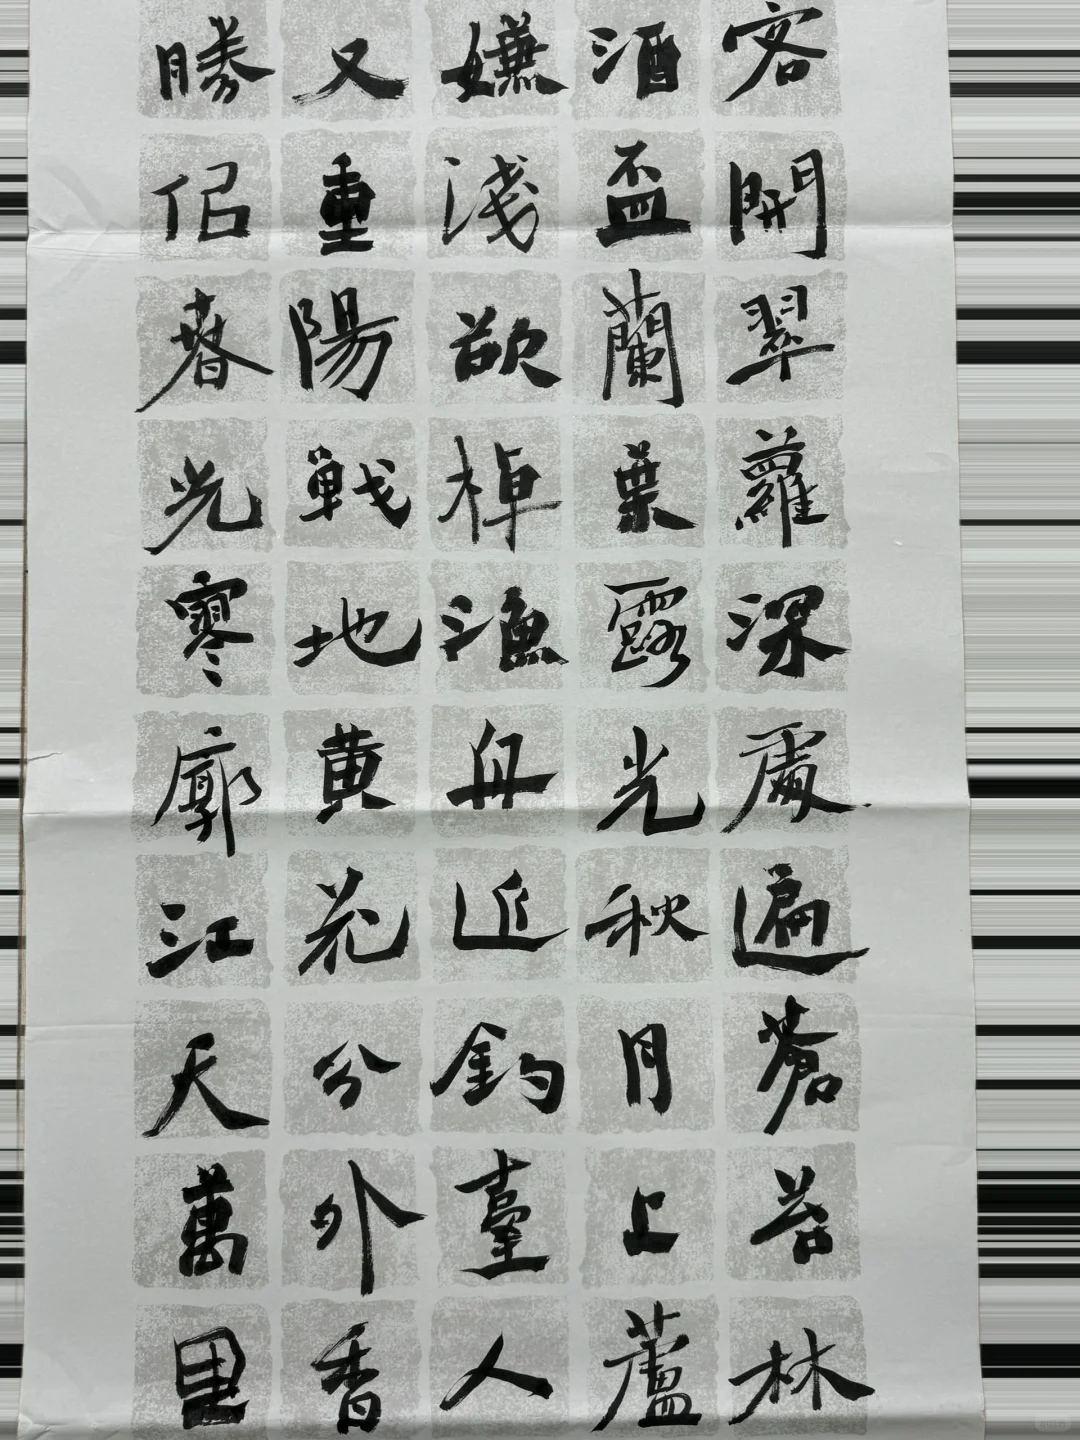 客開翠蘿深處遍蒼苔林
酒盃蘭葉露光秋月上蘆
嫌淺欲棹漁舟近釣臺人
又重陽戰地黄花分外香
勝佀春光寥廓江天萬里